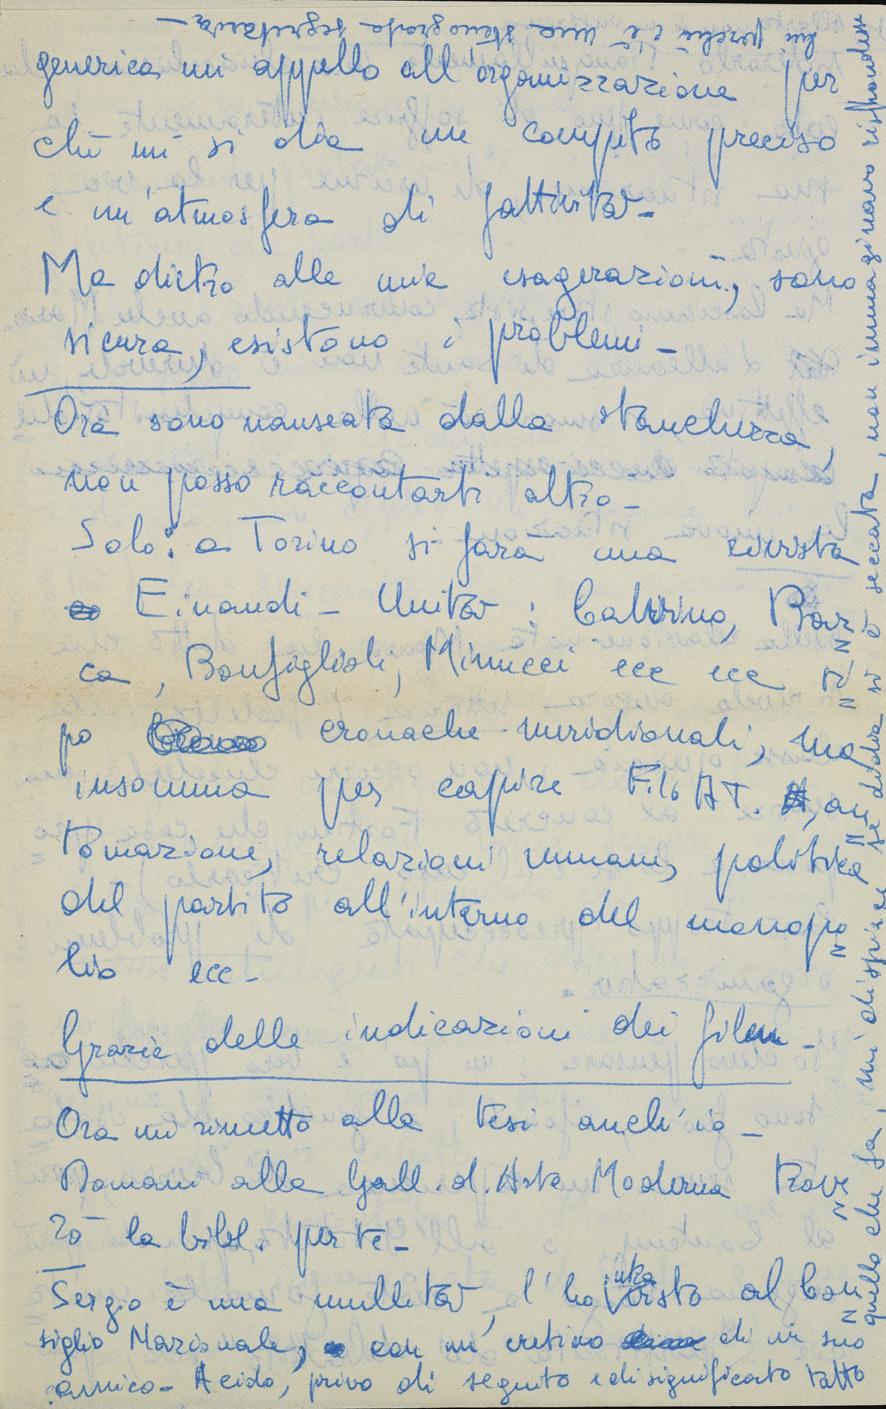 generica un appello all'organizzazione per
chè mi si dia un compito preciso
e un'atmosfera di fattività-
Ma dietro alle mie esagerazioni, sono
sicura, esistono i problemi-
Ora sono nauseata dalla stanchezza,
non posso raccontarti altro-
Solo: a Torino si farà una rivista
Einaudi - Unità: Calvino, Bar
ca, Bonfiglioli, Minucci ecc ecc Ti
po cronache meridionali, ma
insomma per capire FIAT, au
tomazione, relazioni umane, politica
del partito all'interno del monopo
lio ecc-
Grazie delle indicazioni dei film-
Ora mi rimetto alla tesi anch'io-
Domani alla Gall. d. Arte Moderna trove
rò la bibl. per te-
Sergio è una nullità, l'ho intravisto al Con
siglio Nazionale, con un cretino di un suo
amico- Acido, privo di seguito e di significato tatto
quello che fa, mi dispiace se Didia si è seccata, non immaginavo rispondesse
lui perchè c'è una stenografa segretaria-